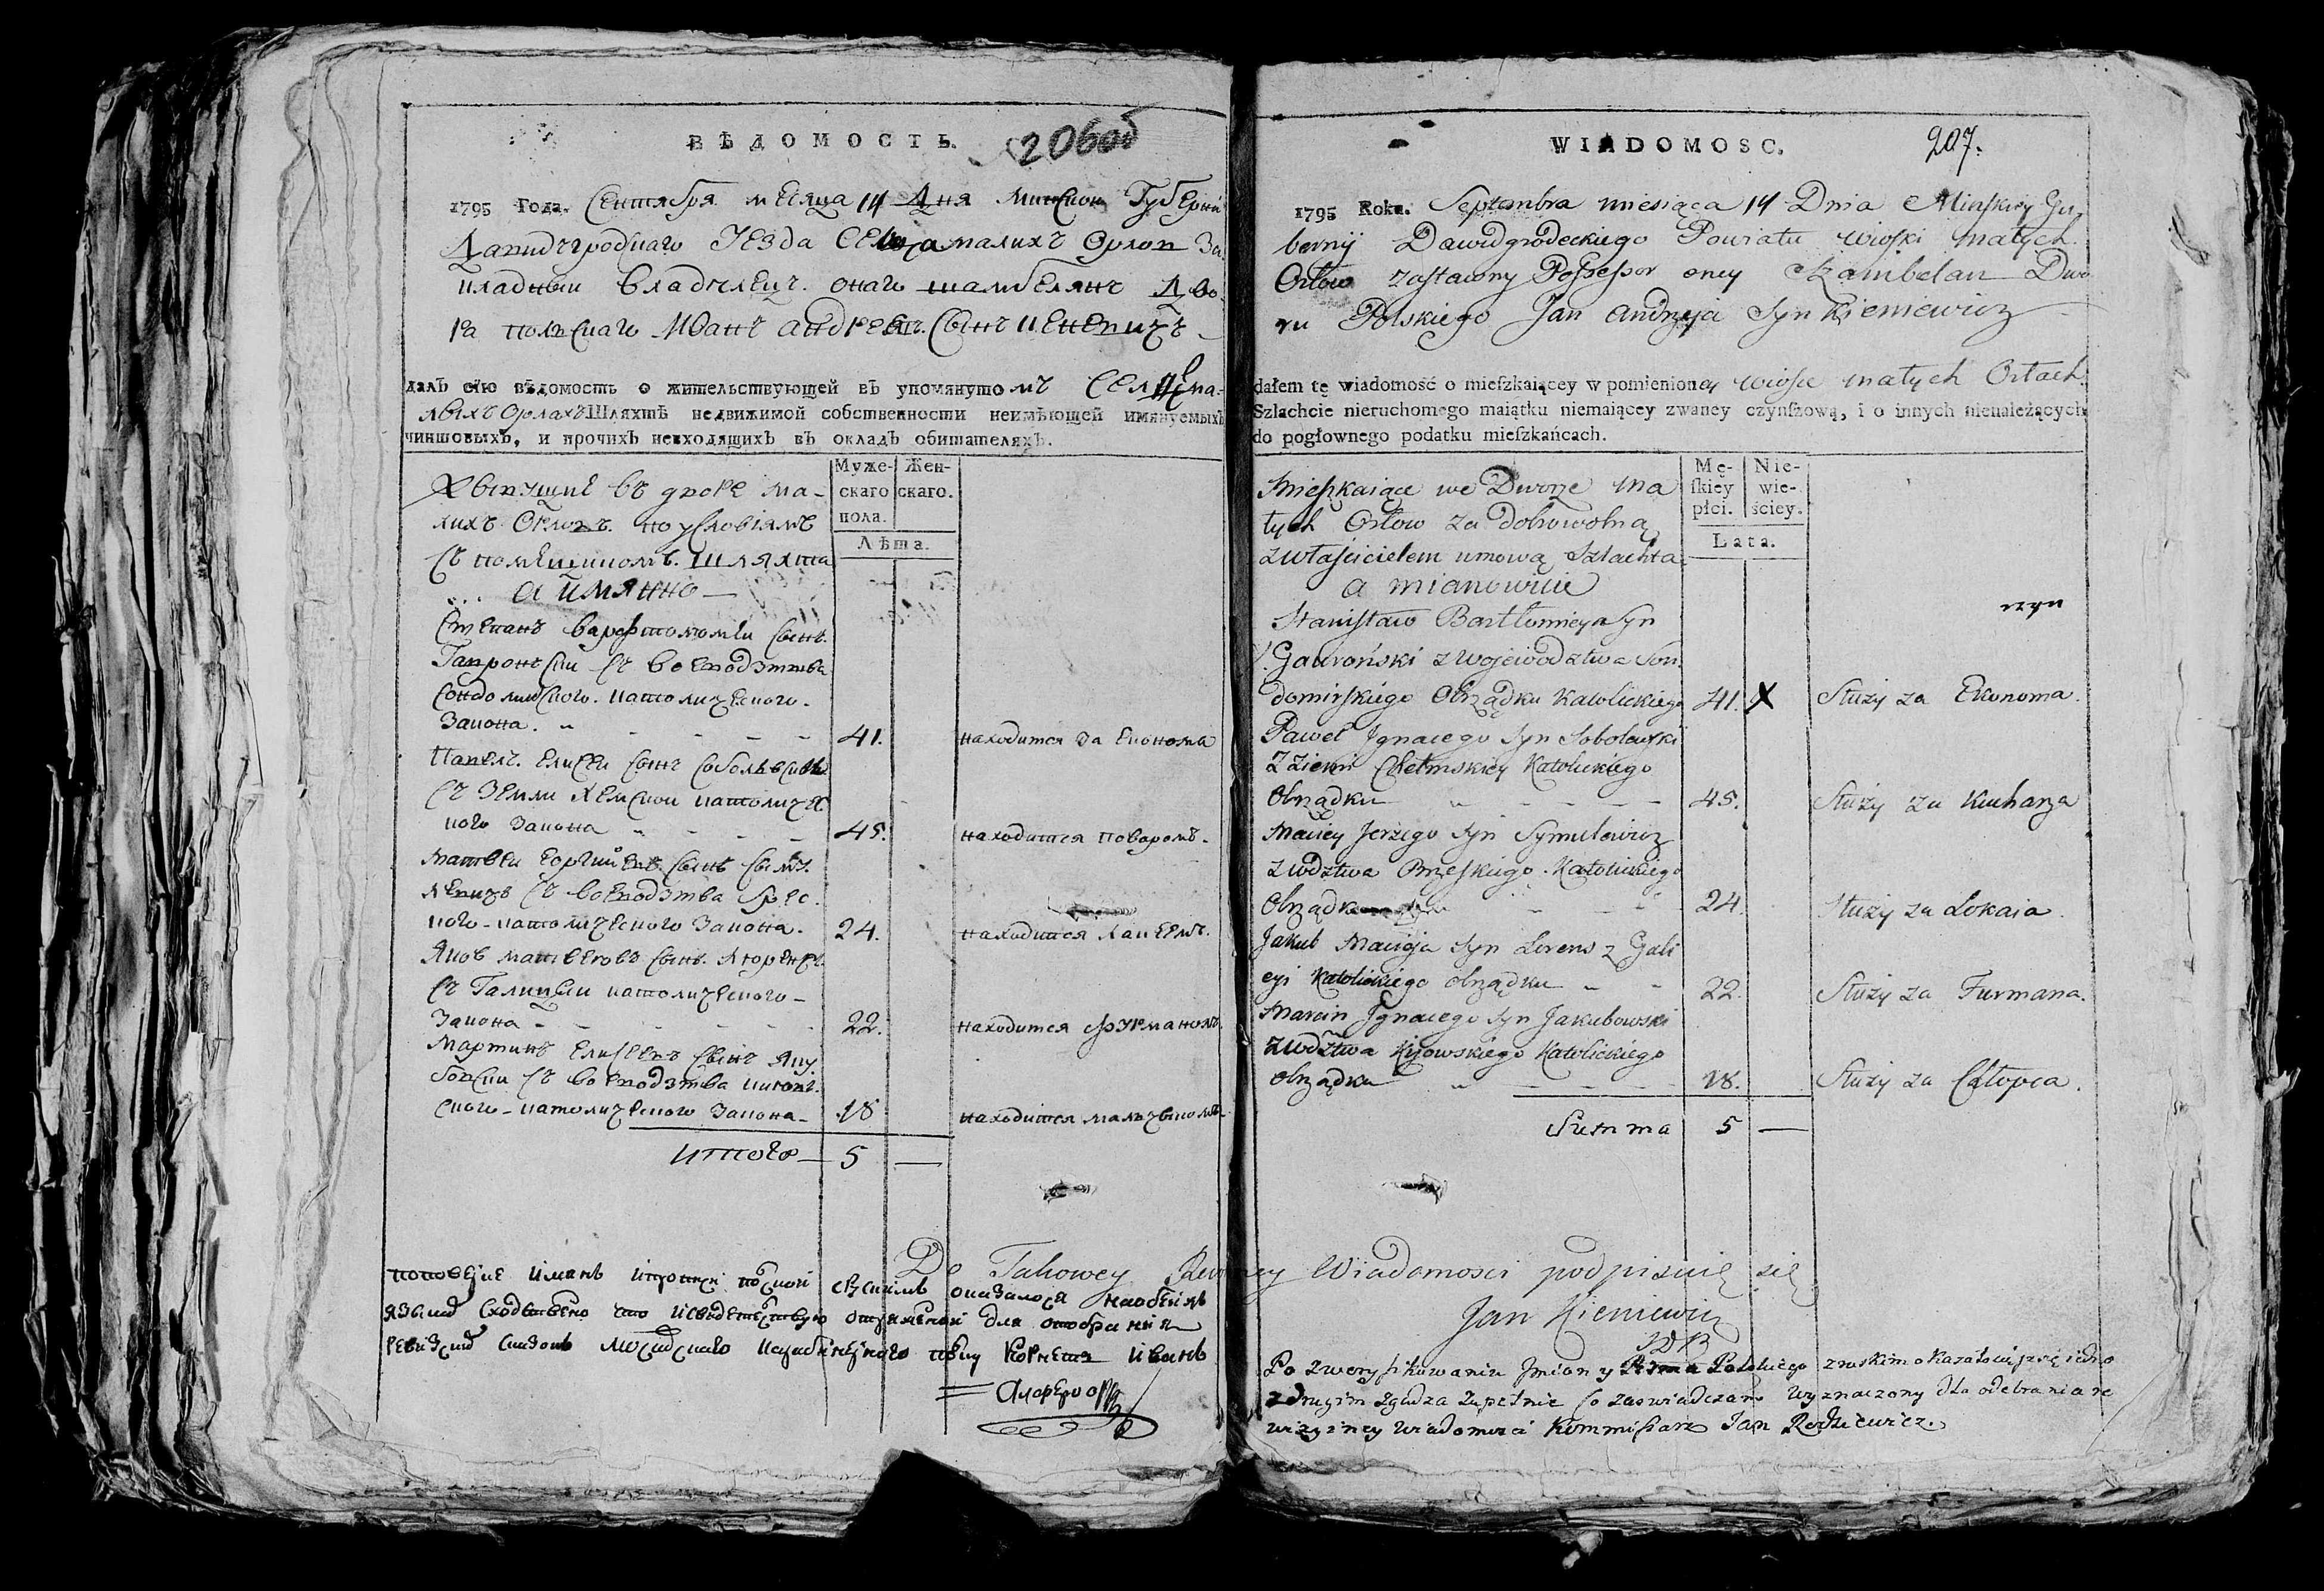 ВѢДОМОСТЬ. 206об
1795 Года. Сентября месяца 14 Дня Минской Губерни
Давидгродцкаго Уезда Сельца малихъ Орлов За
кладный владелецъ онаго шамбелянъ Дво-
ра полскаго Юанъ андреевъ Сынъ Кеневичъ
далъ сію вѣдомость о жительствующей въ упомянутомъ сельце ма-
лыхъ Орлахъ Шляхтѣ недвижимой собственности неимѣющей имянуемыхъ
чиншовыхъ, и прочихъ невходящихъ въ окладъ обитателяхъ.
Муже- Жен-
скаго скаго.
пола.
Лѣта.
Живущие въ дворе ма-
лихъ Орловъ по условіямъ
съ помещикомъ шляхта
а имянно
Степанъ варфтоломеи сынъ
Гавронски съ воеводзтва
Сондомирского католического
Закона 41. находится за економа
Павелъ елисеи сынъ соболевски
съ Земли Хелмской католичес
кого Закона 45. находится поваромъ.
Матвеи еоргиевъ сынъ
съ воеводзтва Брес
кого католического Закона. 24. находится лакеемъ.
Яковъ матвеговъ сынъ Лоренсъ
съ Галиции католического
Закона 22. находится фурманомъ
Мартинъ елисеевъ сынъ Яку
бовски съ воеводзтва киев
ского католического Закона 18 находится малчыкомъ
итого 5 —
языке сходствено что
=Алферьев
WIADOMOSC. 207.
1795 Roku. Septembra miesiąca 14 Dnia Minskiey Gu
bernij Dawidgrodeckiego Powiatu wioski małych
Orłow zastawny Possessor oney Szambelan Dwo
ru Polskiego Jan Andrzeja Syn Kieniewicz
dałem tę wiadomość o mieſzkaiącey w pomienioney wiosce małych Orłach
Szlachcie nieruchomego maiątku niemaiącey zwaney czynſzową, i o innych nienależących
do pogłownego podatku mieſzkańcach.
Mę- Nie-
ſkiey wie-
płci. ściey.
Lata.
Mieszkaiące we Dworze ma
łych Orłow za dobrowolną
z właścicielem umową Szlachta
a mianowicie
Stanisław Bartłomieya Syn
Gawroński z Wojewodztwa Son
domirskiego Obrządku Katolickiego 41. X Służy za Ekonoma.
Paweł Jgnacego Syn Sobolewski
z ziemi Chełmskiey Katolickiego
Obrządku 45. Służy za Kucharza
Maciey Jerzego Syn Symulewicz
z wdztwa Brzeskiego Katolickiego
Obrządku 24. Służy za Lokaia.
Jakub Macieja Syn Lorens z Gali
cyi Katolickiego obrządku 22. Służy za Furmana.
Marcin Jgnacego Syn Jakubowski
z wdztwa Kijowskiego Katolickiego
obrządku 18. Służy za Chłopca.
Summa 5 —
Do Takowey Rewizney Wiadomosci podpisuię się
Jan Kieniewicz
Po zweryfikowaniu Jmion y Polskiego z ruskim okazałowszy się jedno
z drugim zgadza zupełnie co zaswiadczam wyznaczony dla odebrania re
wizyiney wiadomosci Kommisarz Jan